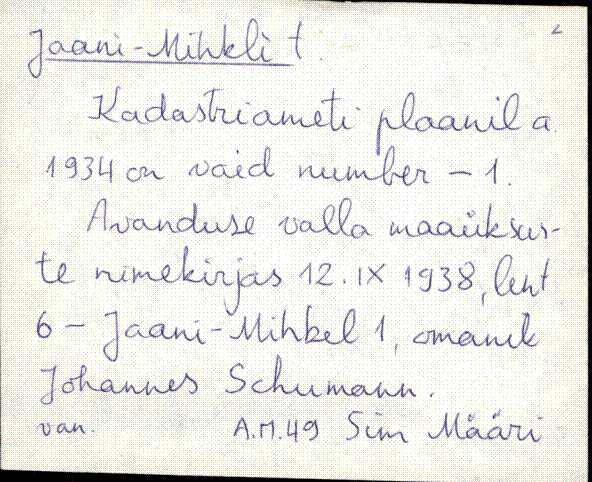 Jaani-Mihkli t.
Kadastriameti plaanil a.
1934 on vaid number – 1.
Avanduse valla maaüksus-
te nimekirjas 12. IX 1938, leht
6 – Jaani-Mihkel 1, omanik
Johannes Schumann.
van. A.M.49 Sim Määri